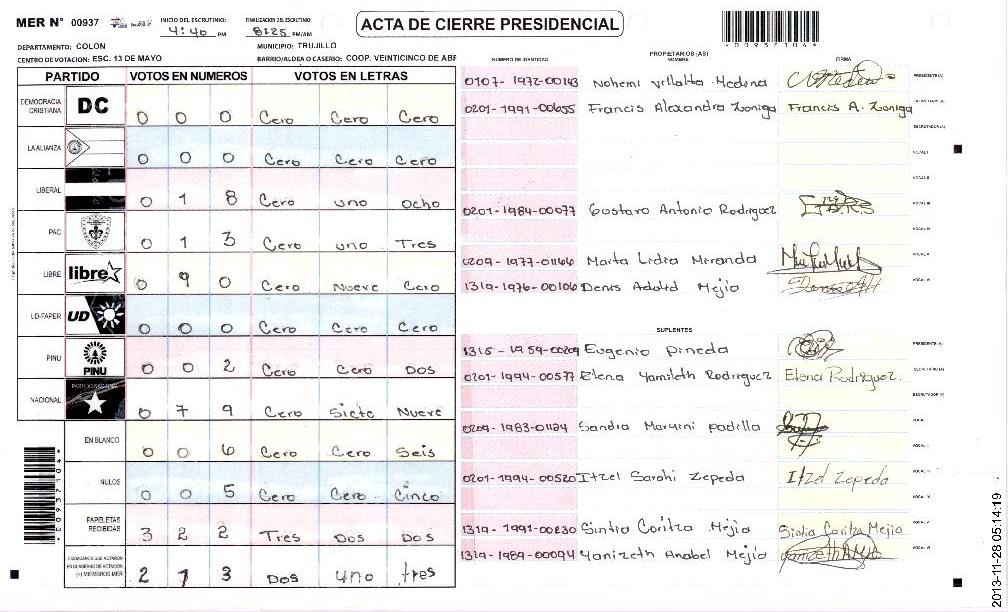 MER N° 00937
INICIO DEL ESCRUTINIO: 4:40 PM
FINALIZACION DEL ESCRUTINIO: 8:25 PM/AM
ACTA DE CIERRE PRESIDENCIAL
*00937104*
DEPARTAMENTO: COLON
MUNICIPIO: TRUJILLO
CENTRO DE VOTACION: ESC. 13 DE MAYO
BARRIO/ALDEA O CASERIO: COOP. VEINTICINCO DE ABF
PARTIDO VOTOS EN NUMEROS VOTOS EN LETRAS
DEMOCRACIA CRISTIANA DC 0 0 0 Cero Cero Cero
LA ALIANZA 0 0 0 Cero Cero Cero
LIBERAL 0 1 8 Cero uno ocho
PAC 0 1 3 Cero uno Tres
LIBRE libre 0 9 0 Cero Nueve Cero
UD-FAPER UD 0 0 0 Cero Cero Cero
PINU PINU 0 0 2 Cero Cero Dos
NACIONAL PARTIDO NACIONAL 0 7 9 Cero Siete Nueve
EN BLANCO 0 0 6 Cero Cero Seis
NULOS 0 0 5 Cero Cero Cinco
PAPELETAS RECIBIDAS 3 2 2 Tres Dos Dos
CIUDADANOS QUE VOTARON EN CUADERNO DE VOTACION (+) MIEMBROS MER 2 1 3 Dos uno tres
*00937104*
PROPIETARIOS (AS)
NUMERO DE IDENTIDAD NOMBRE FIRMA
0107-1972-00143 Nohemi Villalta Medina PRESIDENTE(A)
0201-1991-00655 Francis Alexandra Zooniga Francis A. Zooniga SECRETARIO(A)
ESCRUTADOR (A)
VOCAL I
VOCAL II
0201-1984-00077 Gustavo Antonio Rodriguez VOCAL III
VOCAL IV
0209-1977-01166 Marta Lidia Miranda VOCAL V
1319-1976-00106 Denis Adold Mejio VOCAL VI
SUPLENTES
1315-1959-00209 Eugenio Pineda PRESIDENTE(A)
0201-1994-00577 Elena Yamileth Rodriguez Elena Rodriguez. SECRETARIO (A)
ESCRUTADOR (A)
0209-1983-01124 Sandra Padilla VOCAL I
VOCAL II
0201-1994-00520 Itzel Sarahi Zepeda Itzel Zepeda VOCAL III
VOCAL IV
1319-1991-00230 Sintia Coritza Mejio Sintia Coritza Mejio VOCAL V
1319-1989-00094 Yanizeth Anabel Mejio VOCAL VI
2013-11-28 05:14:19